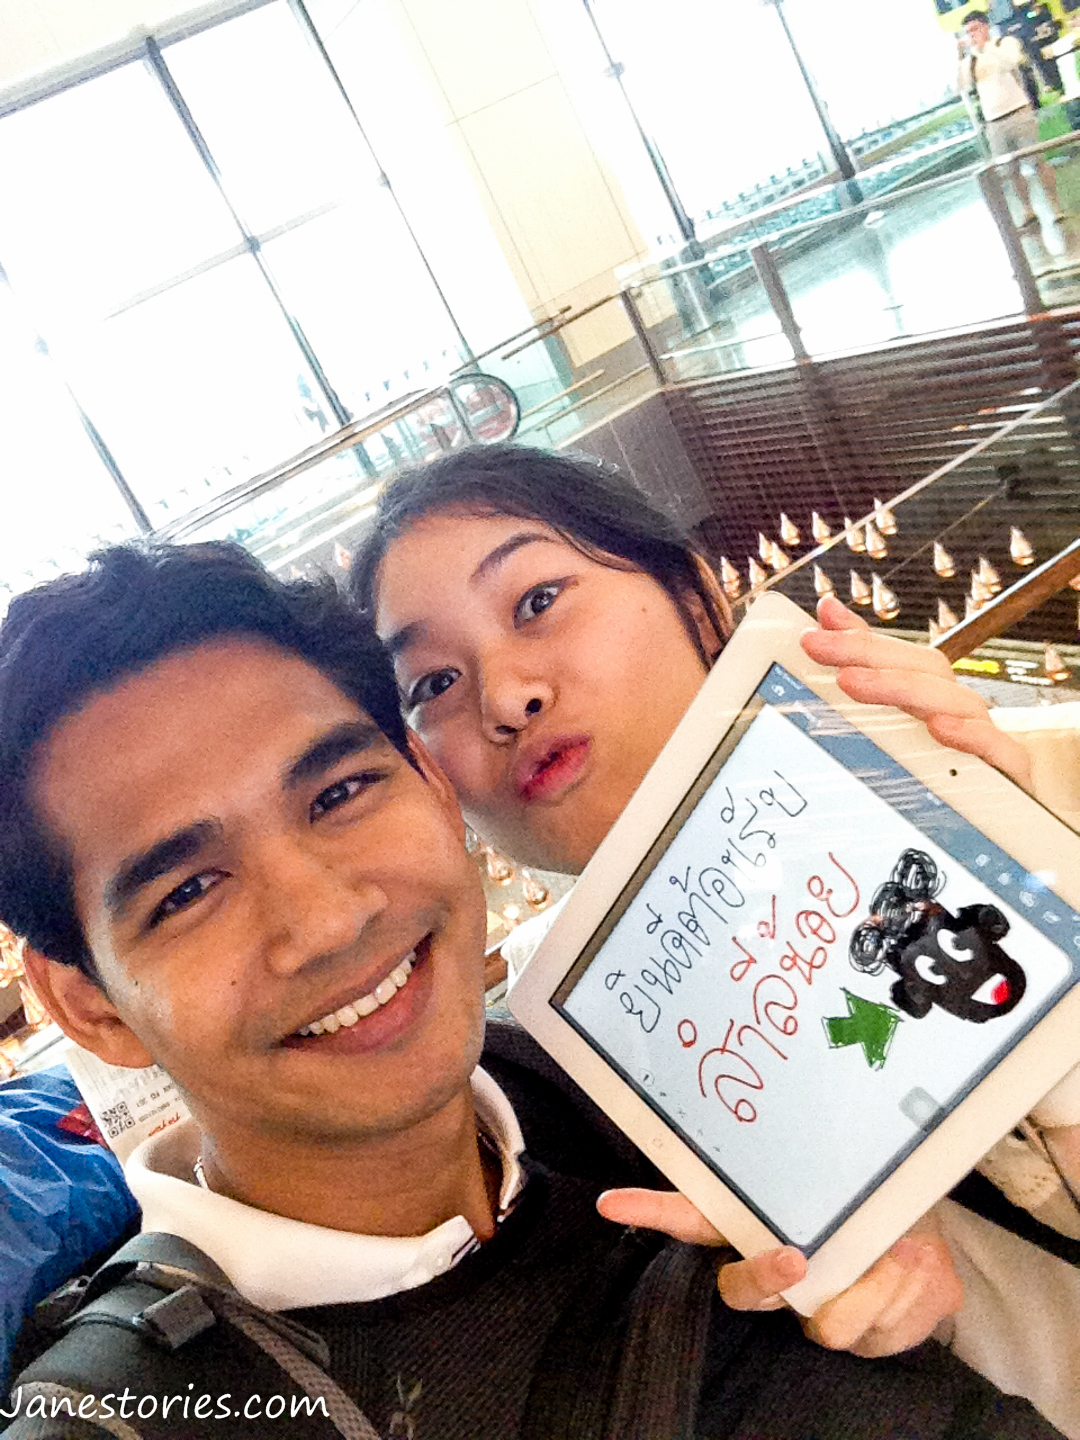 ยินดีต้อนรับ
ลำลีน้อย
Janestories.com